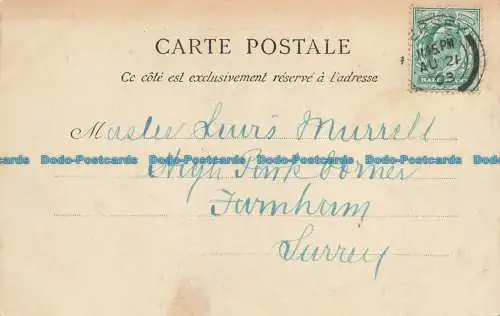 CARTE POSTALE
Ce côté est exclusivement réservé à l'adresse
11.45 PM
AU 21
03
HALF
Master Lewis Murrell
Dodo-Postcards Dodo-Postcards Dodo-Postcards Dodo-Postcards Dodo-Postcards
High Park Corner
Farnham
Surrey